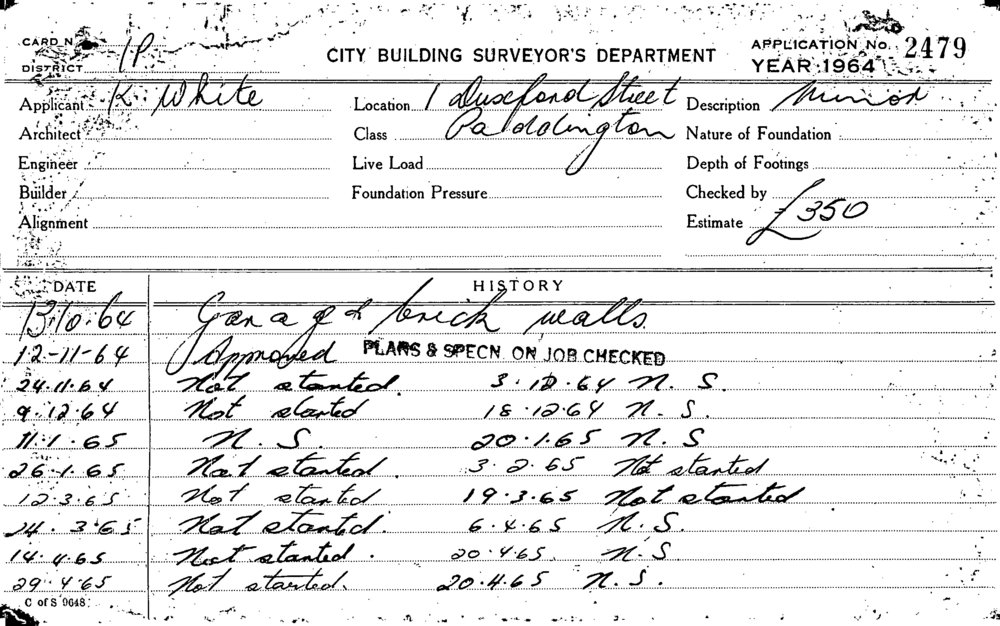 CARD No.
DISTRICT 1P.
CITY BUILDING SURVEYOR'S DEPARTMENT
APPLICATION No. 2479
YEAR 1964
Applicant K. White
Location 1 Duxford Street
Description Minor
Architect
Class Paddington
Nature of Foundation
Engineer
Live Load
Depth of Footings
Builder
Foundation Pressure
Checked by
Alignment
Estimate £350
DATE HISTORY
13.10.64 Garage & brick walls.
12-11-64 Approved PLANS & SPECN. ON JOB CHECKED
24.11.64 Not started. 3.12.64 N. S.
9.12.64 Not started 18.12.64 N. S.
11.1.65 N. S. 20.1.65 N. S
26.1.65 Not started. 3.2.65 Not started
12.3.65 Not started 19.3.65 Not started
24.3.65 Not started. 6.4.65 N. S.
14.4.65 Not started. 20.4.65. N. S
29.4.65 Not started. 20.4.65 N. S.
C of S 9648